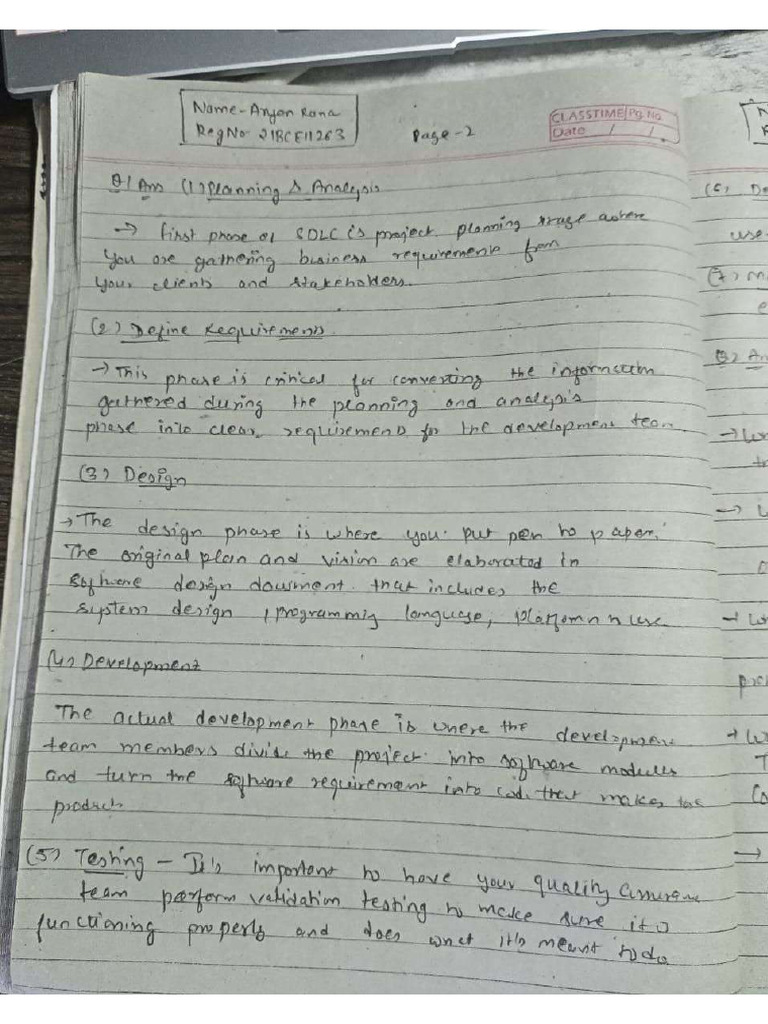 Name - Anjan Rana
Reg No 21BCE11263
Page - 2
CLASSTIME Pg. No.
Date / /
Q1 Ans (1) Planning & Analysis
→ First phase of SDLC is project planning stage where
you are gathering business requirements from
your clients and stakeholders.
(2) Define Requirements
→ This phase is critical for converting the information
gathered during the planning and analysis
phase into clear requirements for the development team
(3) Design
→ The design phase is where you put pen to paper.
The original plan and vision are elaborated in
software design document that includes the
system design, programming language, platform to use
(4) Development
The actual development phase is where the development
team members divide the project into software modules
and turn the software requirement into code that makes the
product
(5) Testing - It's important to have your quality assurance
team perform validation testing to make sure it is
functioning properly and does what it's meant to do
(5) De
use
(7) M
Q2 An